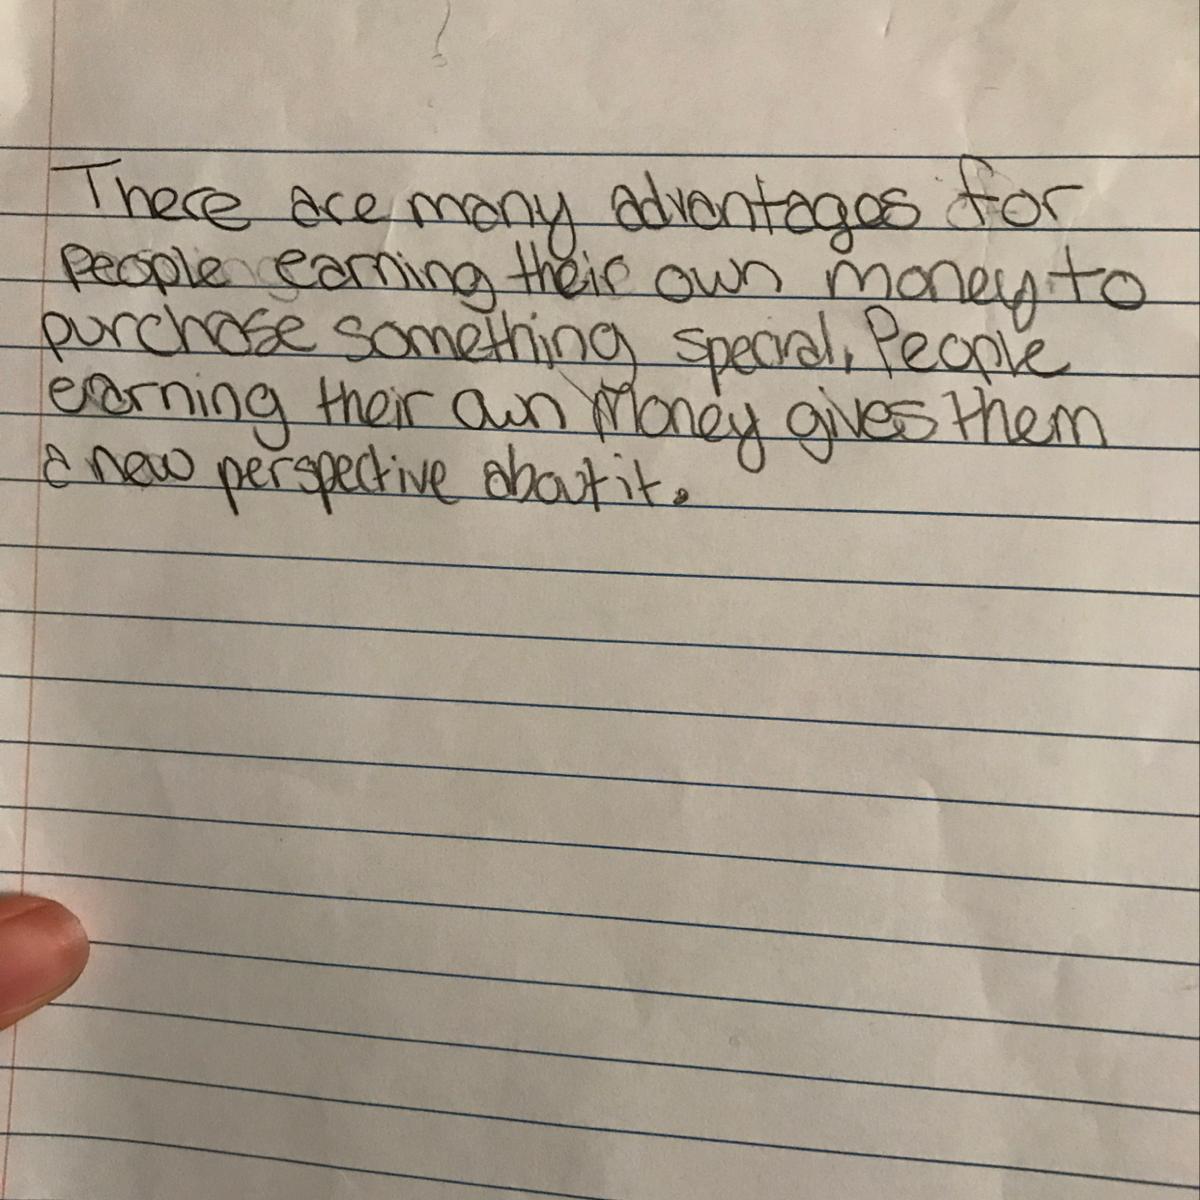 There are many advantages for
people earning their own money to
purchase something special. People
earning their own money gives them
a new perspective about it.